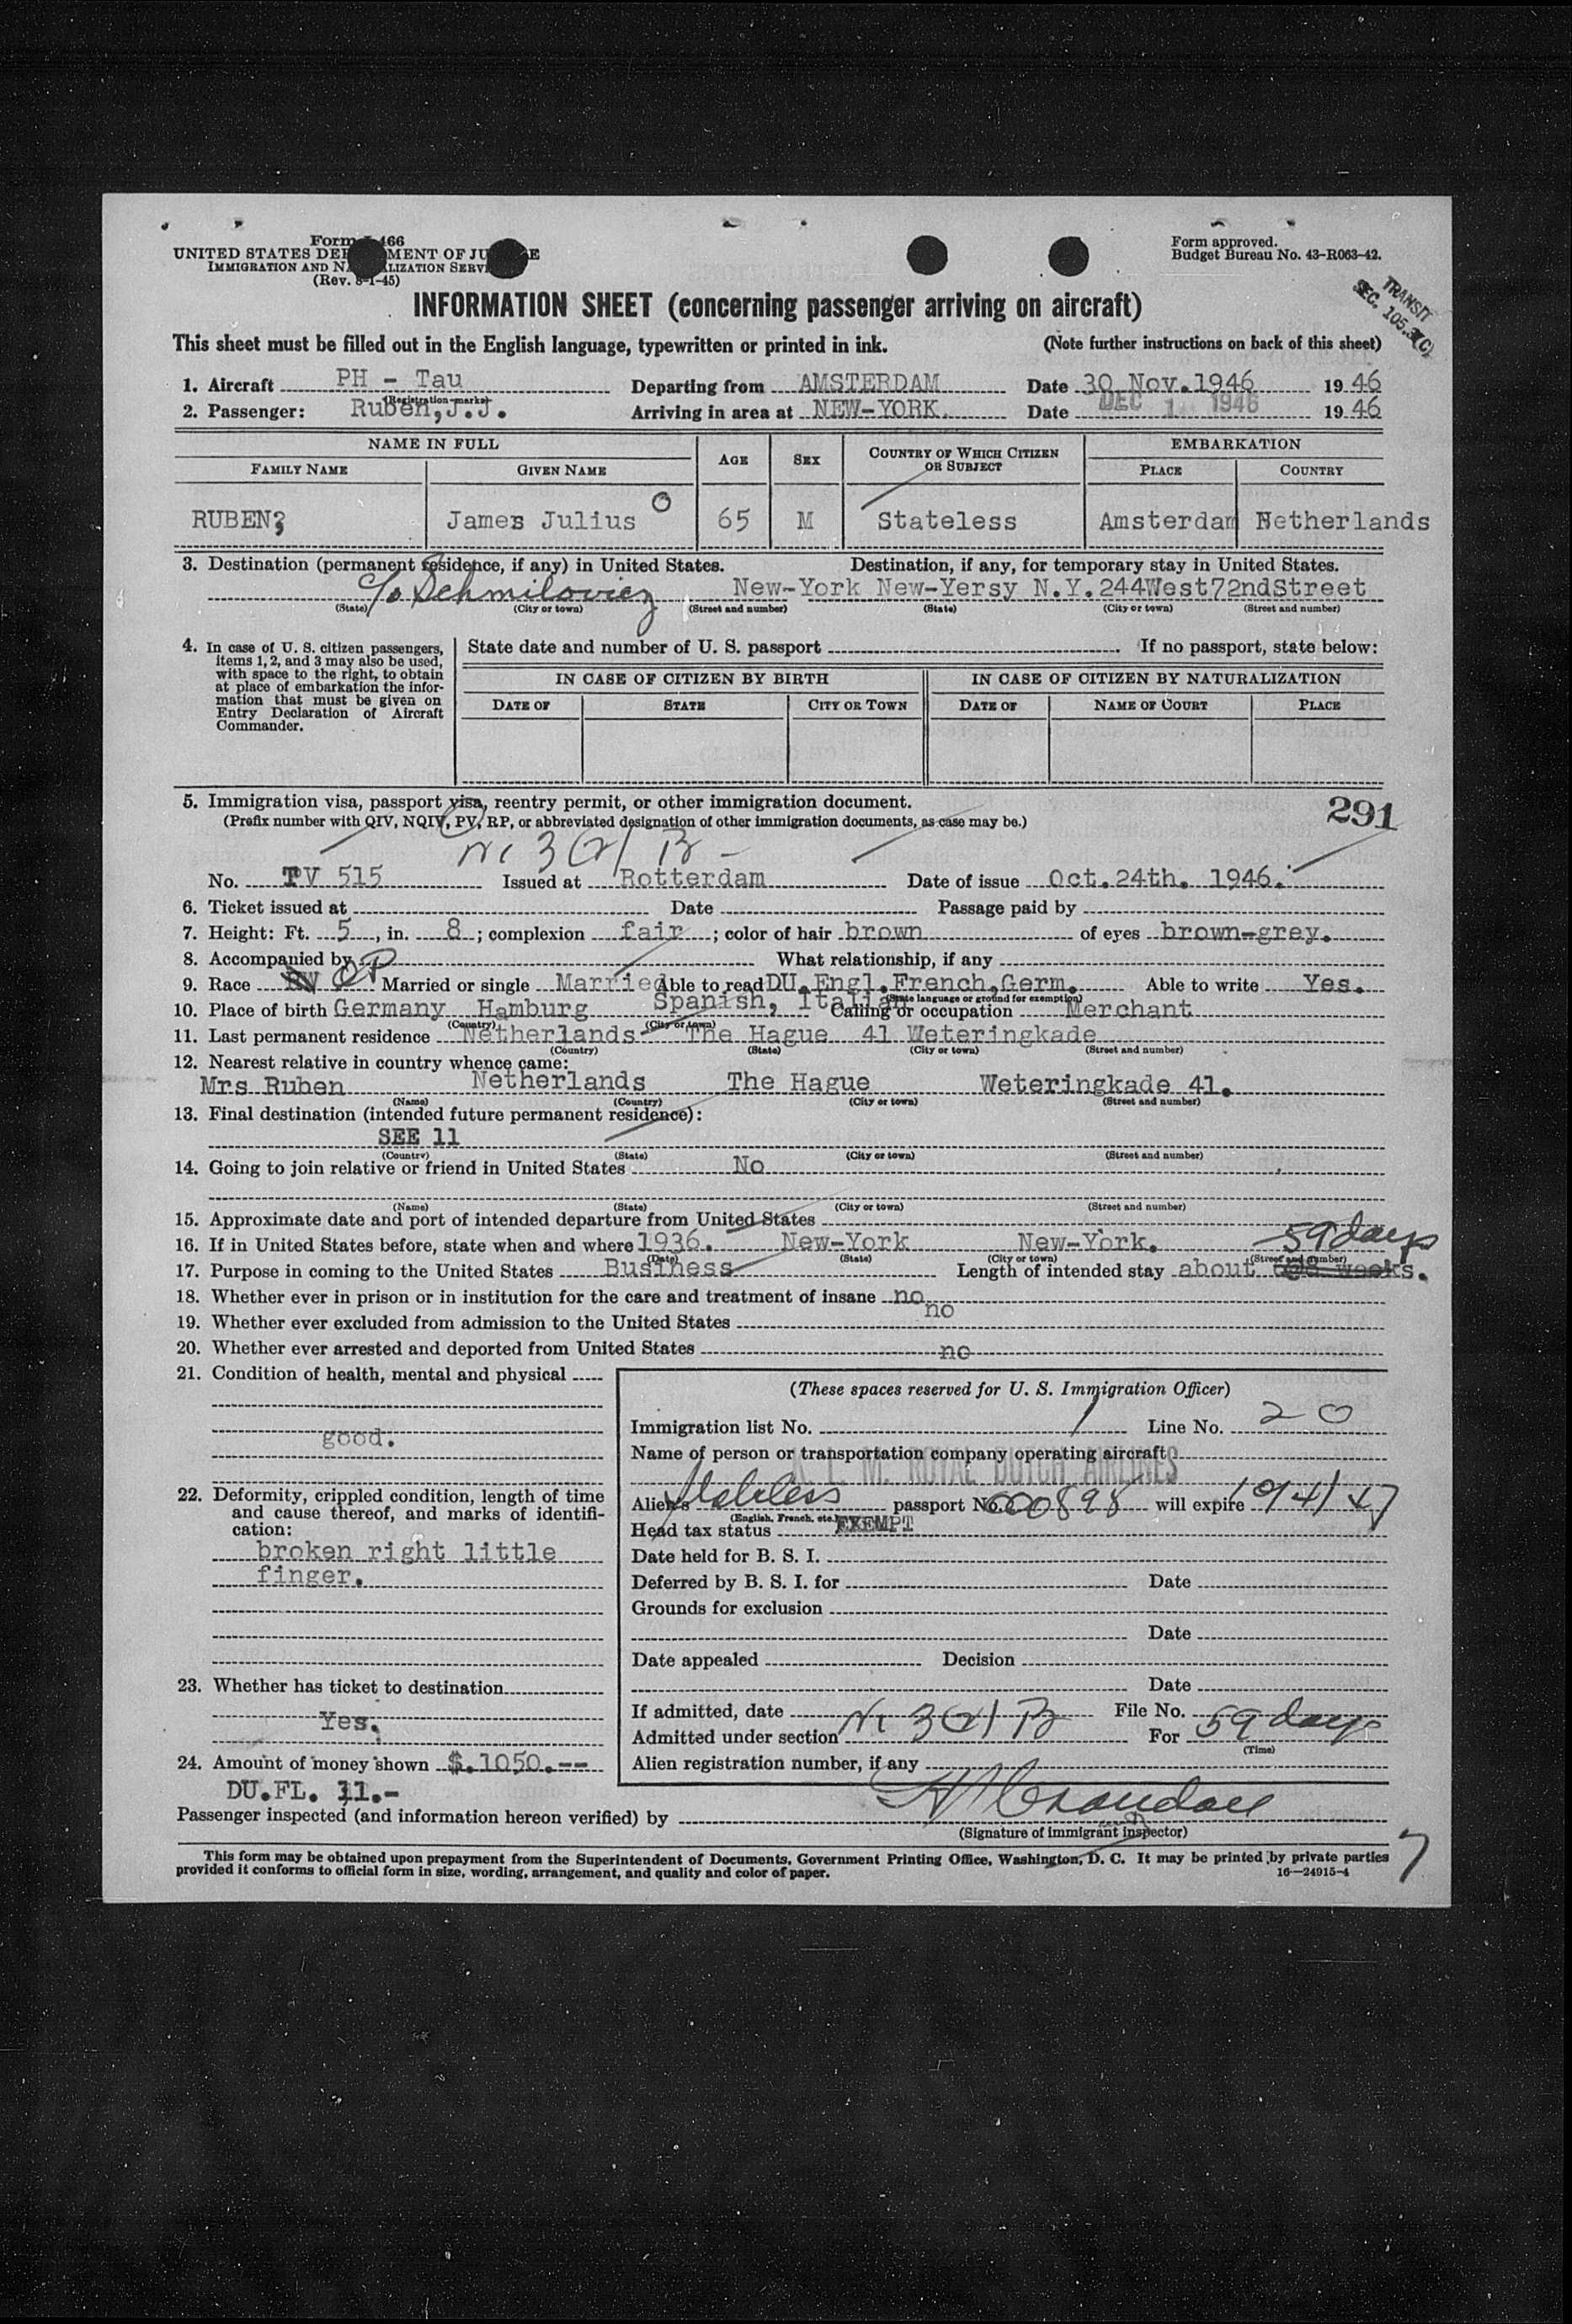 Form I-466
UNITED STATES DEPARTMENT OF JUSTICE
IMMIGRATION AND NATURALIZATION SERVICE
(Rev. 8-1-45)
Form approved.
Budget Bureau No. 43-R063-42.
TRANSIT
SEC. 105.3(C)
INFORMATION SHEET (concerning passenger arriving on aircraft)
This sheet must be filled out in the English language, typewritten or printed in ink. (Note further instructions on back of this sheet)
1. Aircraft PH - Tau Departing from AMSTERDAM Date 30 Nov.1946 19 46
(Registration marks)
2. Passenger: Ruben,J.J. Arriving in area at NEW-YORK. Date DEC 1 1946 19 46
NAME IN FULL AGE SEX COUNTRY OF WHICH CITIZEN OR SUBJECT EMBARKATION
FAMILY NAME GIVEN NAME PLACE COUNTRY
RUBEN James Julius 65 M Stateless Amsterdam Netherlands
3. Destination (permanent residence, if any) in United States. Destination, if any, for temporary stay in United States.
c/o Schmilovicz New-York New-Yersy N.Y.244West72ndStreet
(State) (City or town) (Street and number) (State) (City or town) (Street and number)
4. In case of U. S. citizen passengers, items 1, 2, and 3 may also be used, with space to the right, to obtain at place of embarkation the information that must be given on Entry Declaration of Aircraft Commander.
State date and number of U. S. passport If no passport, state below:
IN CASE OF CITIZEN BY BIRTH IN CASE OF CITIZEN BY NATURALIZATION
DATE OF STATE CITY OR TOWN DATE OF NAME OF COURT PLACE
5. Immigration visa, passport visa, reentry permit, or other immigration document.
291
(Prefix number with QIV, NQIV, PV, RP, or abbreviated designation of other immigration documents, as case may be.)
3(2) B
No. TV 515 Issued at Rotterdam Date of issue Oct.24th. 1946.
6. Ticket issued at Date Passage paid by
7. Height: Ft. 5, in. 8; complexion fair; color of hair brown of eyes brown-grey.
8. Accompanied by What relationship, if any
9. Race OP Married or single Married Able to read DU.Engl.French,Germ. Able to write Yes.
Spanish, Italian (State language or ground for exemption)
10. Place of birth Germany Hamburg Calling or occupation Merchant
(Country) (City or town)
11. Last permanent residence Netherlands The Hague 41 Weteringkade
(Country) (State) (City or town) (Street and number)
12. Nearest relative in country whence came:
Mrs Ruben Netherlands The Hague Weteringkade 41.
(Name) (Country) (City or town) (Street and number)
13. Final destination (intended future permanent residence):
SEE 11
(Country) (State) (City or town) (Street and number)
14. Going to join relative or friend in United States No
(Name) (State) (City or town) (Street and number)
15. Approximate date and port of intended departure from United States
16. If in United States before, state when and where 1936. New-York New-York. 59 days
(Date) (State) (City or town) (Street and number)
17. Purpose in coming to the United States Business Length of intended stay about weeks.
18. Whether ever in prison or in institution for the care and treatment of insane no
19. Whether ever excluded from admission to the United States no
20. Whether ever arrested and deported from United States no
21. Condition of health, mental and physical
good.
22. Deformity, crippled condition, length of time and cause thereof, and marks of identification:
broken right little
finger.
23. Whether has ticket to destination
Yes.
24. Amount of money shown $.1050.--
DU.FL. 11.-
(These spaces reserved for U. S. Immigration Officer)
Immigration list No. 1 Line No. 20
Name of person or transportation company operating aircraft
K. L. M. ROYAL DUTCH AIRLINES
Alien's Stateless passport No. 600898 will expire 10/4/47
(English, French, etc.)
Head tax status EXEMPT
Date held for B. S. I.
Deferred by B. S. I. for Date
Grounds for exclusion
Date
Date appealed Decision
Date
If admitted, date File No.
Admitted under section 3(2) B For 59 days
(Time)
Alien registration number, if any
Passenger inspected (and information hereon verified) by
(Signature of immigrant inspector)
This form may be obtained upon prepayment from the Superintendent of Documents, Government Printing Office, Washington, D. C. It may be printed by private parties
provided it conforms to official form in size, wording, arrangement, and quality and color of paper. 16—24915-4
7